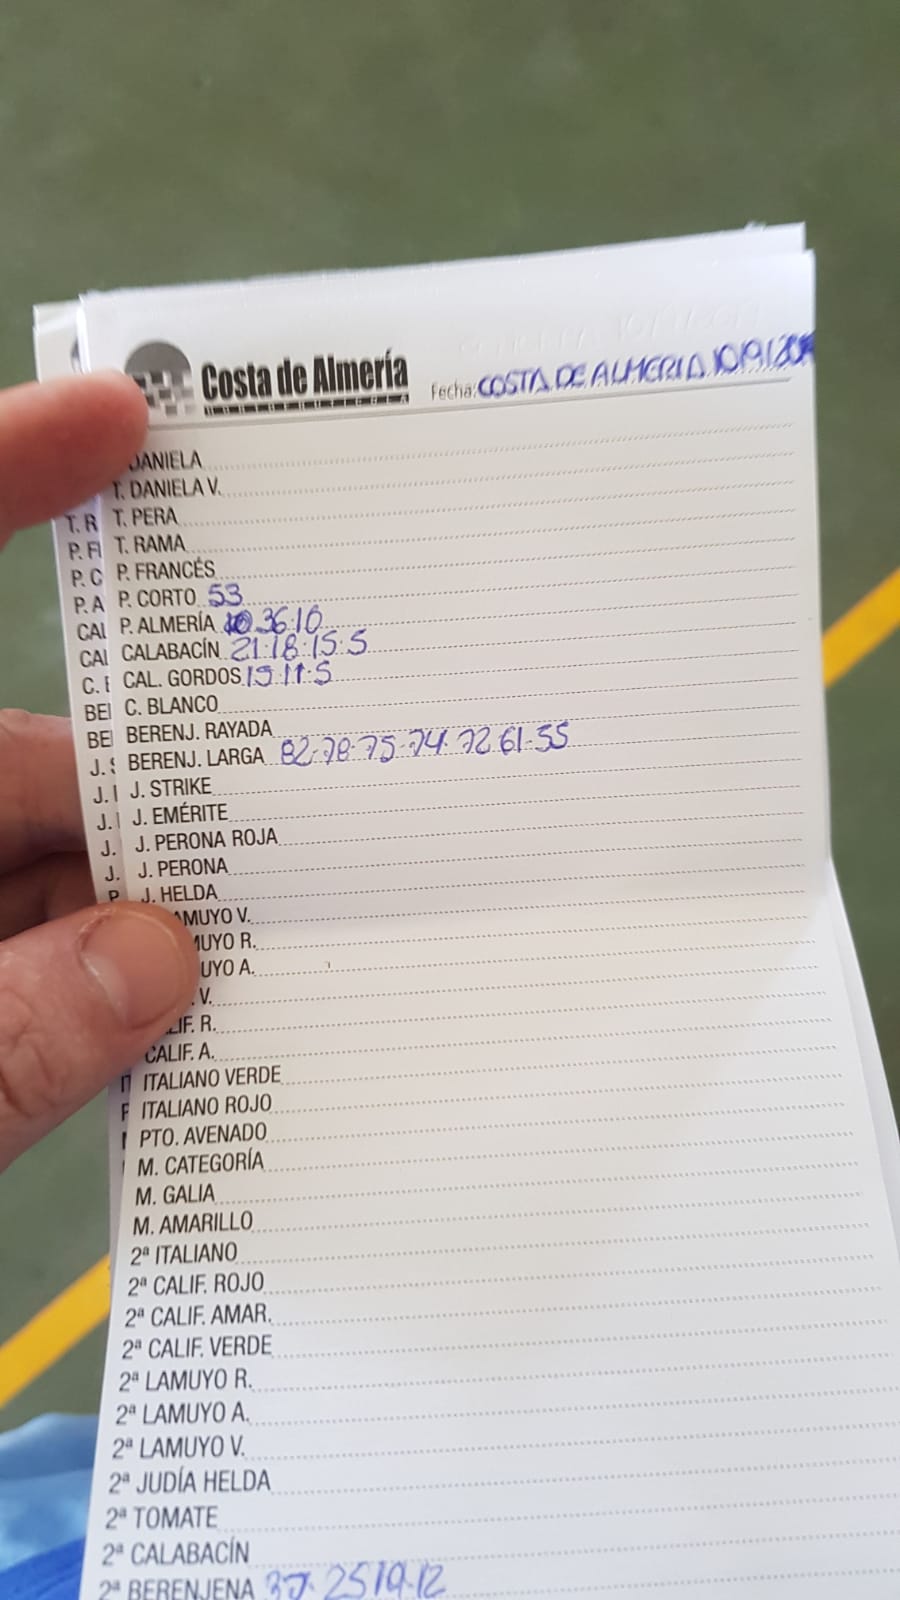 Costa de Almería
Fecha: COSTA DE ALMERIA 10/9/20
DANIELA
T. DANELA V.
T. PERA
T. RAMA
P. FRANCÉS
P. CORTO 53
P. ALMERÍA 36·10
CALABACÍN 21·18·15·5
CAL. GORDOS 15·11·5
C. BLANCO
BERENJ. RAYADA
BERENJ. LARGA 82·78·75·74·72 61·55
J. STRIKE
J. EMÉRITE
J. PERONA ROJA
J. PERONA
J. HELDA
AMUYO V.
MUYO R.
UYO A.
V.
LIF. R.
CALIF. A.
ITALIANO VERDE
ITALIANO ROJO
PTO. AVENADO
M. CATEGORÍA
M. GALIA
M. AMARILLO
2ª ITALIANO
2ª CALIF. ROJO
2ª CALIF. AMAR.
2ª CALIF. VERDE
2ª LAMUYO R.
2ª LAMUYO A.
2ª LAMUYO V.
2ª JUDÍA HELDA
2ª TOMATE
2ª CALABACÍN
2ª BERENJENA 37·25 19·12
T. R
P. F
P. C
P. A
CAL
CAL
C. B
BE
BE
J. S
J.
J.
J.
J.
P